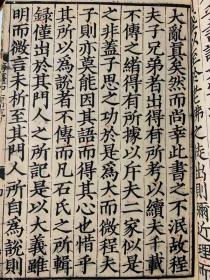 佛之徒出則彌近理
大亂真矣然而尚幸此書之不泯故程
夫子兄弟者出得有所考以續夫千載
不傳之緒得有所據以斥夫二家似是
之非蓋子思之功於是爲大而微程夫
子則亦莫能因其語而得其心也惜乎
其所以爲說者不傳而凡石氏之所輯
録僅出於其門人之所記是以大義雖
明而微言未析至其門人所自爲說則